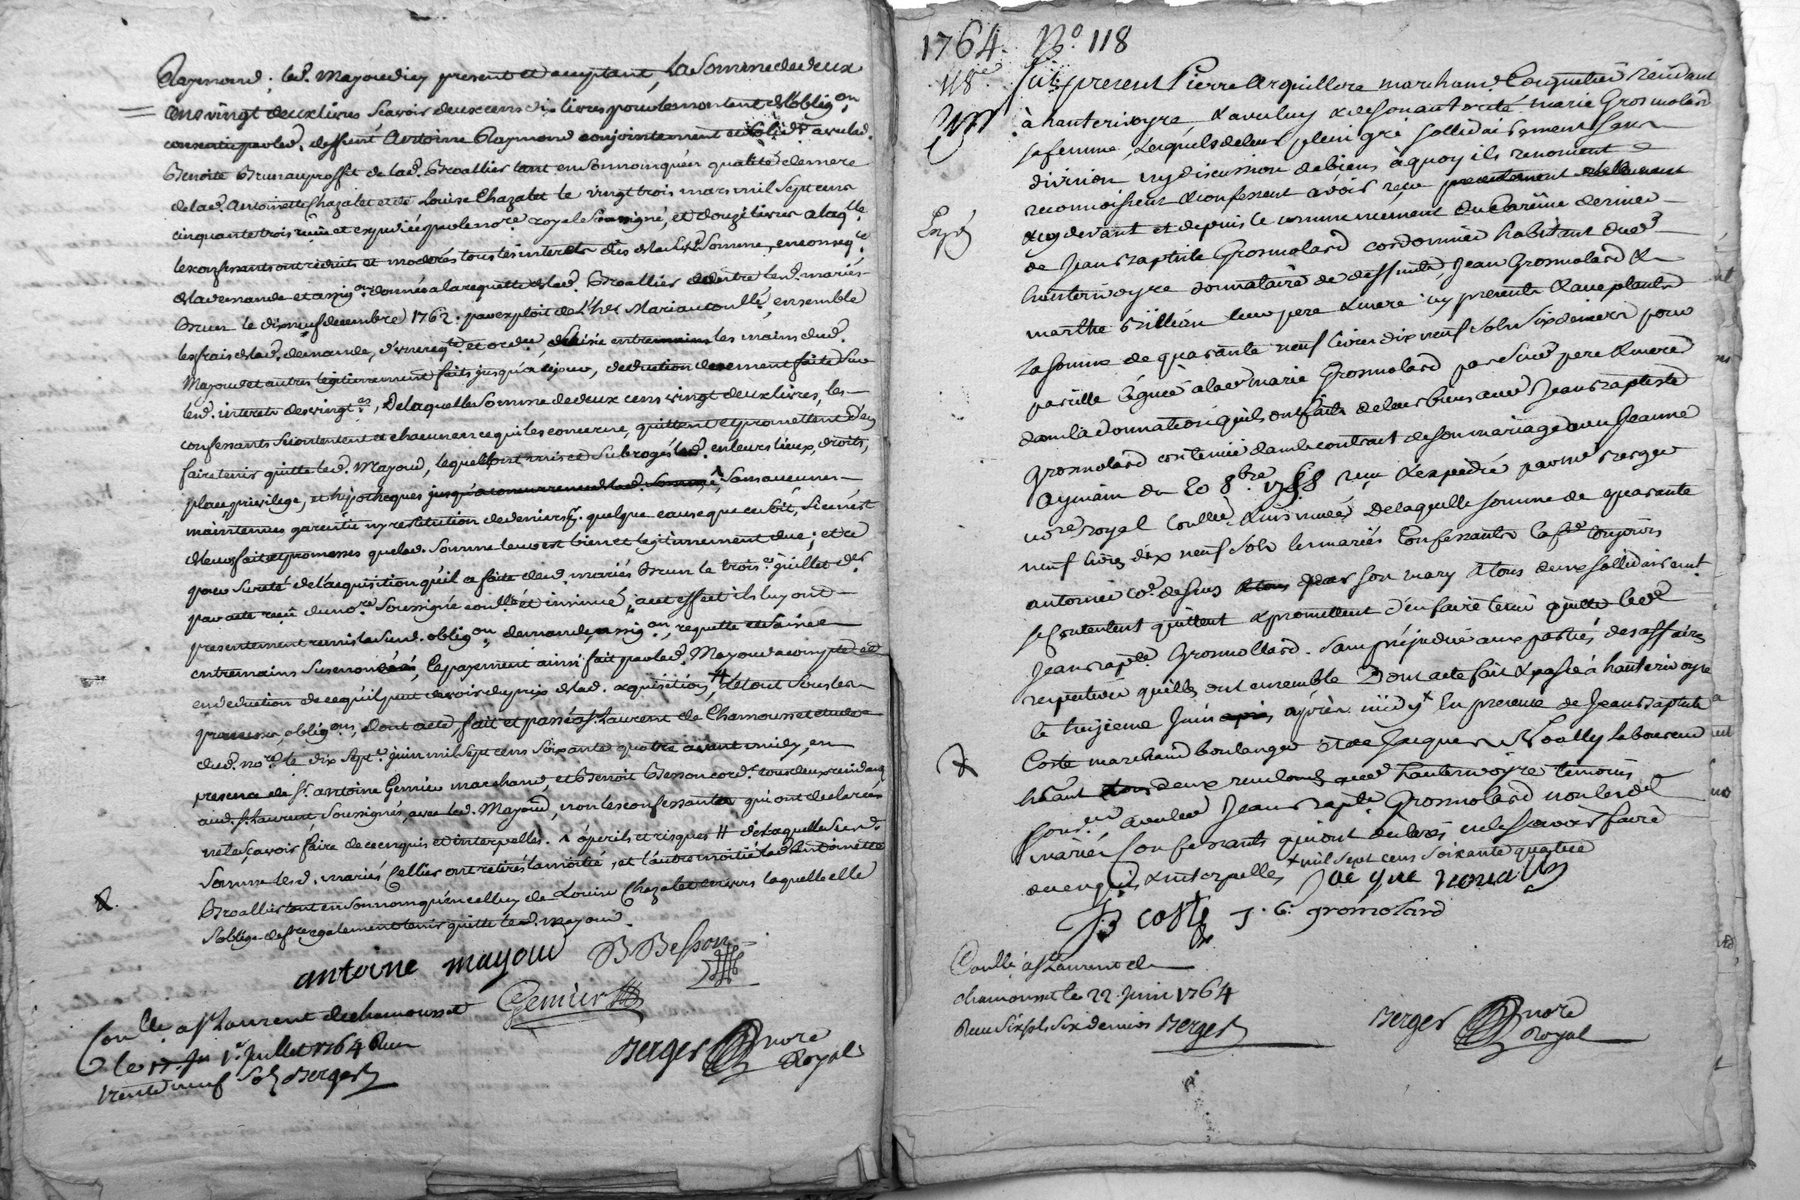 Raymond, led. Mayoud icy present et acceptant, la somme de deux
cens vingt deux livres scavoir deux cens dix livres pour le montant de l'oblig.on
consentie par led. deffunt Antoine Raymond conjointement et solid.t avec lad.
Benoite Brun au proffit de lad. Broallier tant en son nom qu'en qualité de mere
de lad. Antoinette Chazalet et de Louise Chazalet le vingt trois mars mil sept cens
cinquante trois reçüe et expediée par le no.re royal soussigné, et douze livres a laq.lle
les confessants ont reduits et moderés tous les interets dûs de lad. somme, en conseq.ce
de la demande et assig.on données a la requette de lad. Broallier contre lesd. mariés
Brun le dix neuf decembre 1762. par exploit de
les frais de lad. demande, et ord.ce, saisie entre mains les mains dud.
Mayoud et autres legitimement faits jusqu'a ce jour, deduction
lesd. interets des vingt.es, de laquelle somme de deux cens vingt deux livres, les
confessants se contentent et chacun en ce qui les concerne, quittent et promettent d'en
faire tenir quitte led. Mayoud, lequel ils ont mis et subrogés en leurs lieux, droits,
place, privilege, et hypotheques sans aucunes
maintenües garentie ny restitution de deniers p.r quelque cause que ce soit, si ce n'est
de leurs faits et promesses que lad. somme leur est bien et legitimement due; et ce
pour sureté de l'acquisition qu'il a faite desd. mariés Brun le trois.e juillet d.er
par acte reçû du no.re soussigné controllé et insinué, a cet effet ils luy ont
presentement remis lesd. oblig.on, demande, assig.on, requette et saisie
entre mains susenoncées, le payement ainsi fait par led. Mayoud a compte et
en deduction de ce qu'il peut devoir du prix de lad. acquisition, # le tout sous les
promesses, oblig.ons, dont acte, fait et passé a St Laurent de Chamousset etude
dud. no.re le dix sept.e juin mil sept cens soixante quatre avant midy, en
presence de S.r Antoine Gemier marchand, et Benoit Besson cord.r tous deux residants
aud. St Laurent soussignés, avec led. Mayoud, non les confessants qui ont declarés
ne le scavoir faire de ce enquis et interpellés. ^ a perils et risques # de laquelle susd.
somme lesd. mariés Cellier ont retirés la moitié, et l'autre moitié lad. Antoinette
Broallier tant en son nom qu'en celluy de Louise Chazalet envers laquelle elle
s'oblige de faire egalement tenir quitte led. Mayoud.
antoine mayoud B Besson
Gemier
Con.llé a St Laurent de chamousset
le 1.er Juillet 1764 Reçu
trente neuf sols Berger
Berger nore
Royal
1764. N.o 118
118.e
Exp.é
fut present Pierre Arquillere marchand Coquetier residant
à hauterivoyre & avec luy & de son autorité marie Grosmolard
sa femme, lesquels de leur plein gré sollidairement sans
division ny discussion de biens à quoy ils renoncent
reconnoissent & confessent avoir reçu
cy devant et depuis le commencement du Carême dernier
de Jean Baptiste Grosmolard cordonnier habitant aud.
hauterivoyre donnataire de deffunts Jean Grosmolard &
marthe Villian leur pere & mere icy present & acceptant
la somme de quarante neuf livres dix neuf sols six deniers pour
pareille leguée a lad. marie Grosmolard par sesd. pere & mere
dans la donnation qu'ils ont faite de leurs biens aud. Jean Baptiste
Grosmolard contenüe dans le contract de son mariage avec Jeanne
Aymain du 20 8.bre 1758 reçu & expedié par m.e Berger
no.re royal Conllé & insinué, de laquelle somme de quarante
neuf livres dix neuf sols les mariés Confessants
autorisée co.e dessus son mary & tous deux sollidairement
se Contentent quittent & promettent d'en faire tenir quitte led.
Jean Bapte Grosmollard. sans préjudice aux parties des affaires
respectives qu'elles ont ensemble Dont acte fait & passé à hauterivoyre
le treizieme Juin après midy x En presence de Jean Baptiste
Coste marchand boulanger & de Jacques Noally laboureur
tous deux residants aud. hauterivoyre temoins
sous.nés avec led. Jean Bapte Grosmolard non lesd.
mariés Confessants qui ont declarés ne le scavoir faire
de ce enquis & interpellés x mil sept cens soixante quatre
Jacque noualy
JB coste J. b. gromolard
Conllé a St Laurent de
chamousset le 22. Juin 1764
Reçu six sols six deniers Berger
Berger nore
Royal